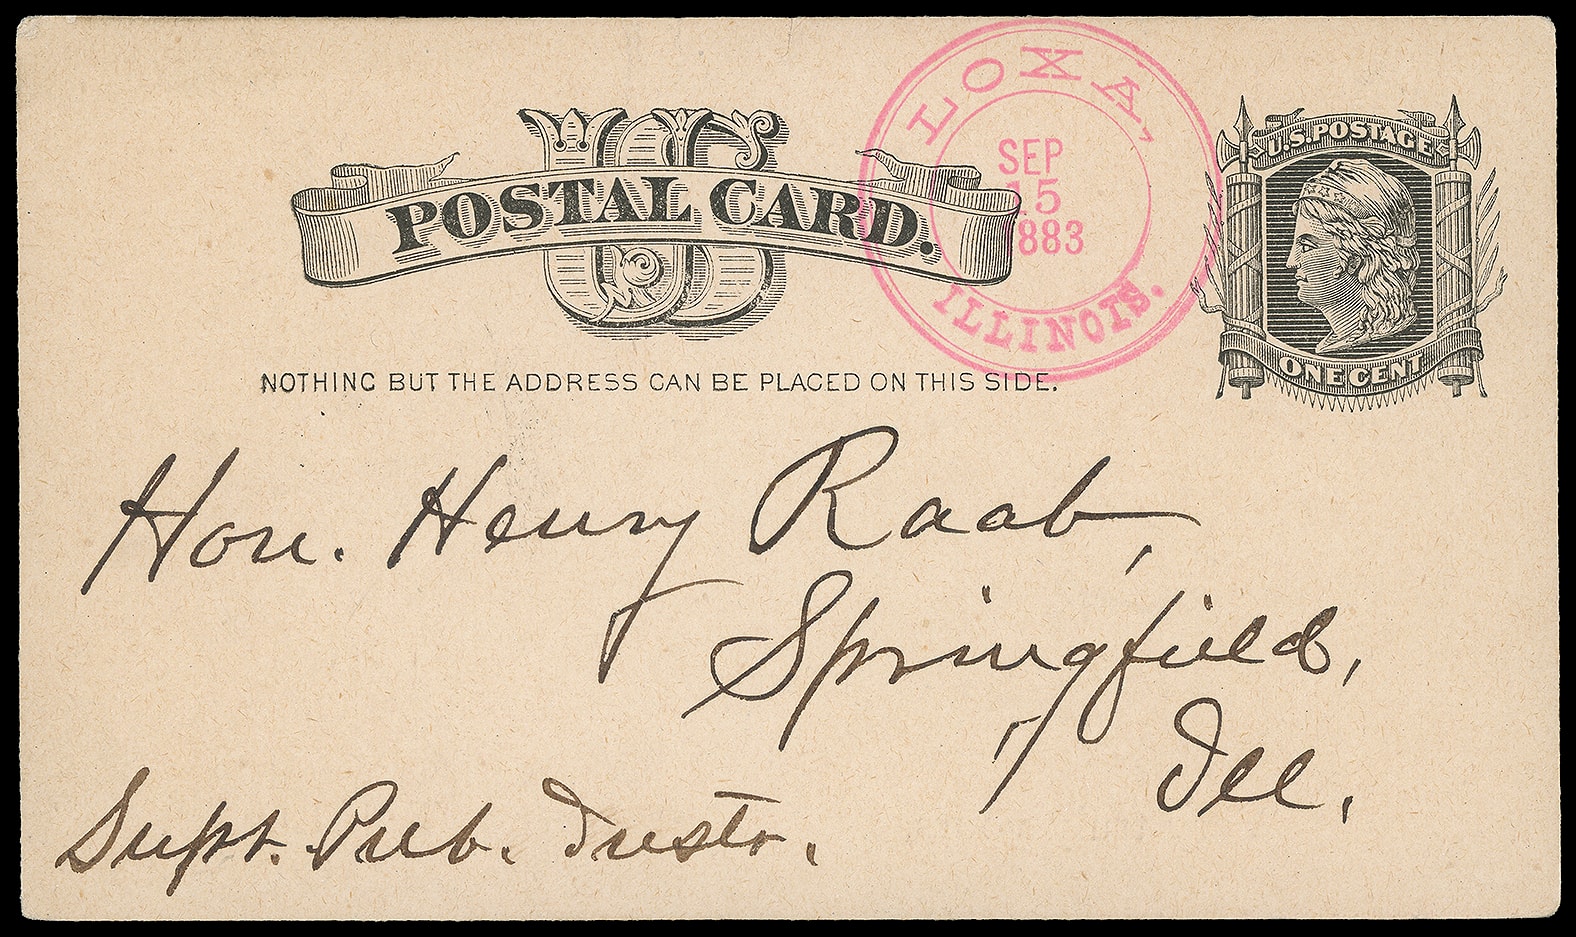 US
POSTAL CARD.
LOXA,
SEP
15
1883
ILLINOIS.
U.S. POSTAGE
ONE CENT
NOTHING BUT THE ADDRESS CAN BE PLACED ON THIS SIDE.
Hon. Henry Raab,
Springfield,
Ill.
Supt. Pub. Instr.